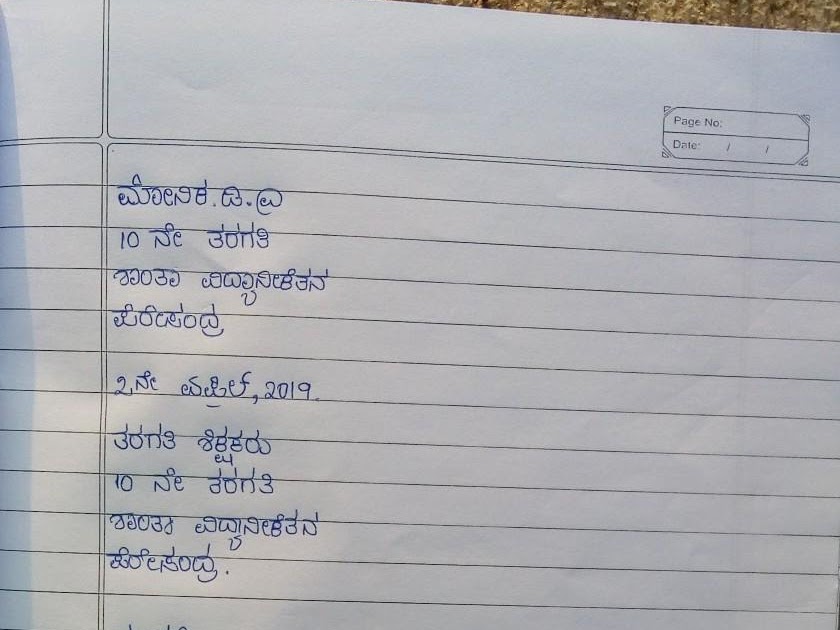 Page No:
Date: / /
ಮೋನಿಕ.ಡಿ.ವಿ
10 ನೇ ತರಗತಿ
ಶಾಂತಾ ವಿದ್ಯಾನಿಕೇತನ
ಪೆರೇಸಂದ್ರ
2ನೇ ಏಪ್ರಿಲ್, 2019.
ತರಗತಿ ಶಿಕ್ಷಕರು
10 ನೇ ತರಗತಿ
ಶಾಂತಾ ವಿದ್ಯಾನಿಕೇತನ
ಪೆರೇಸಂದ್ರ.